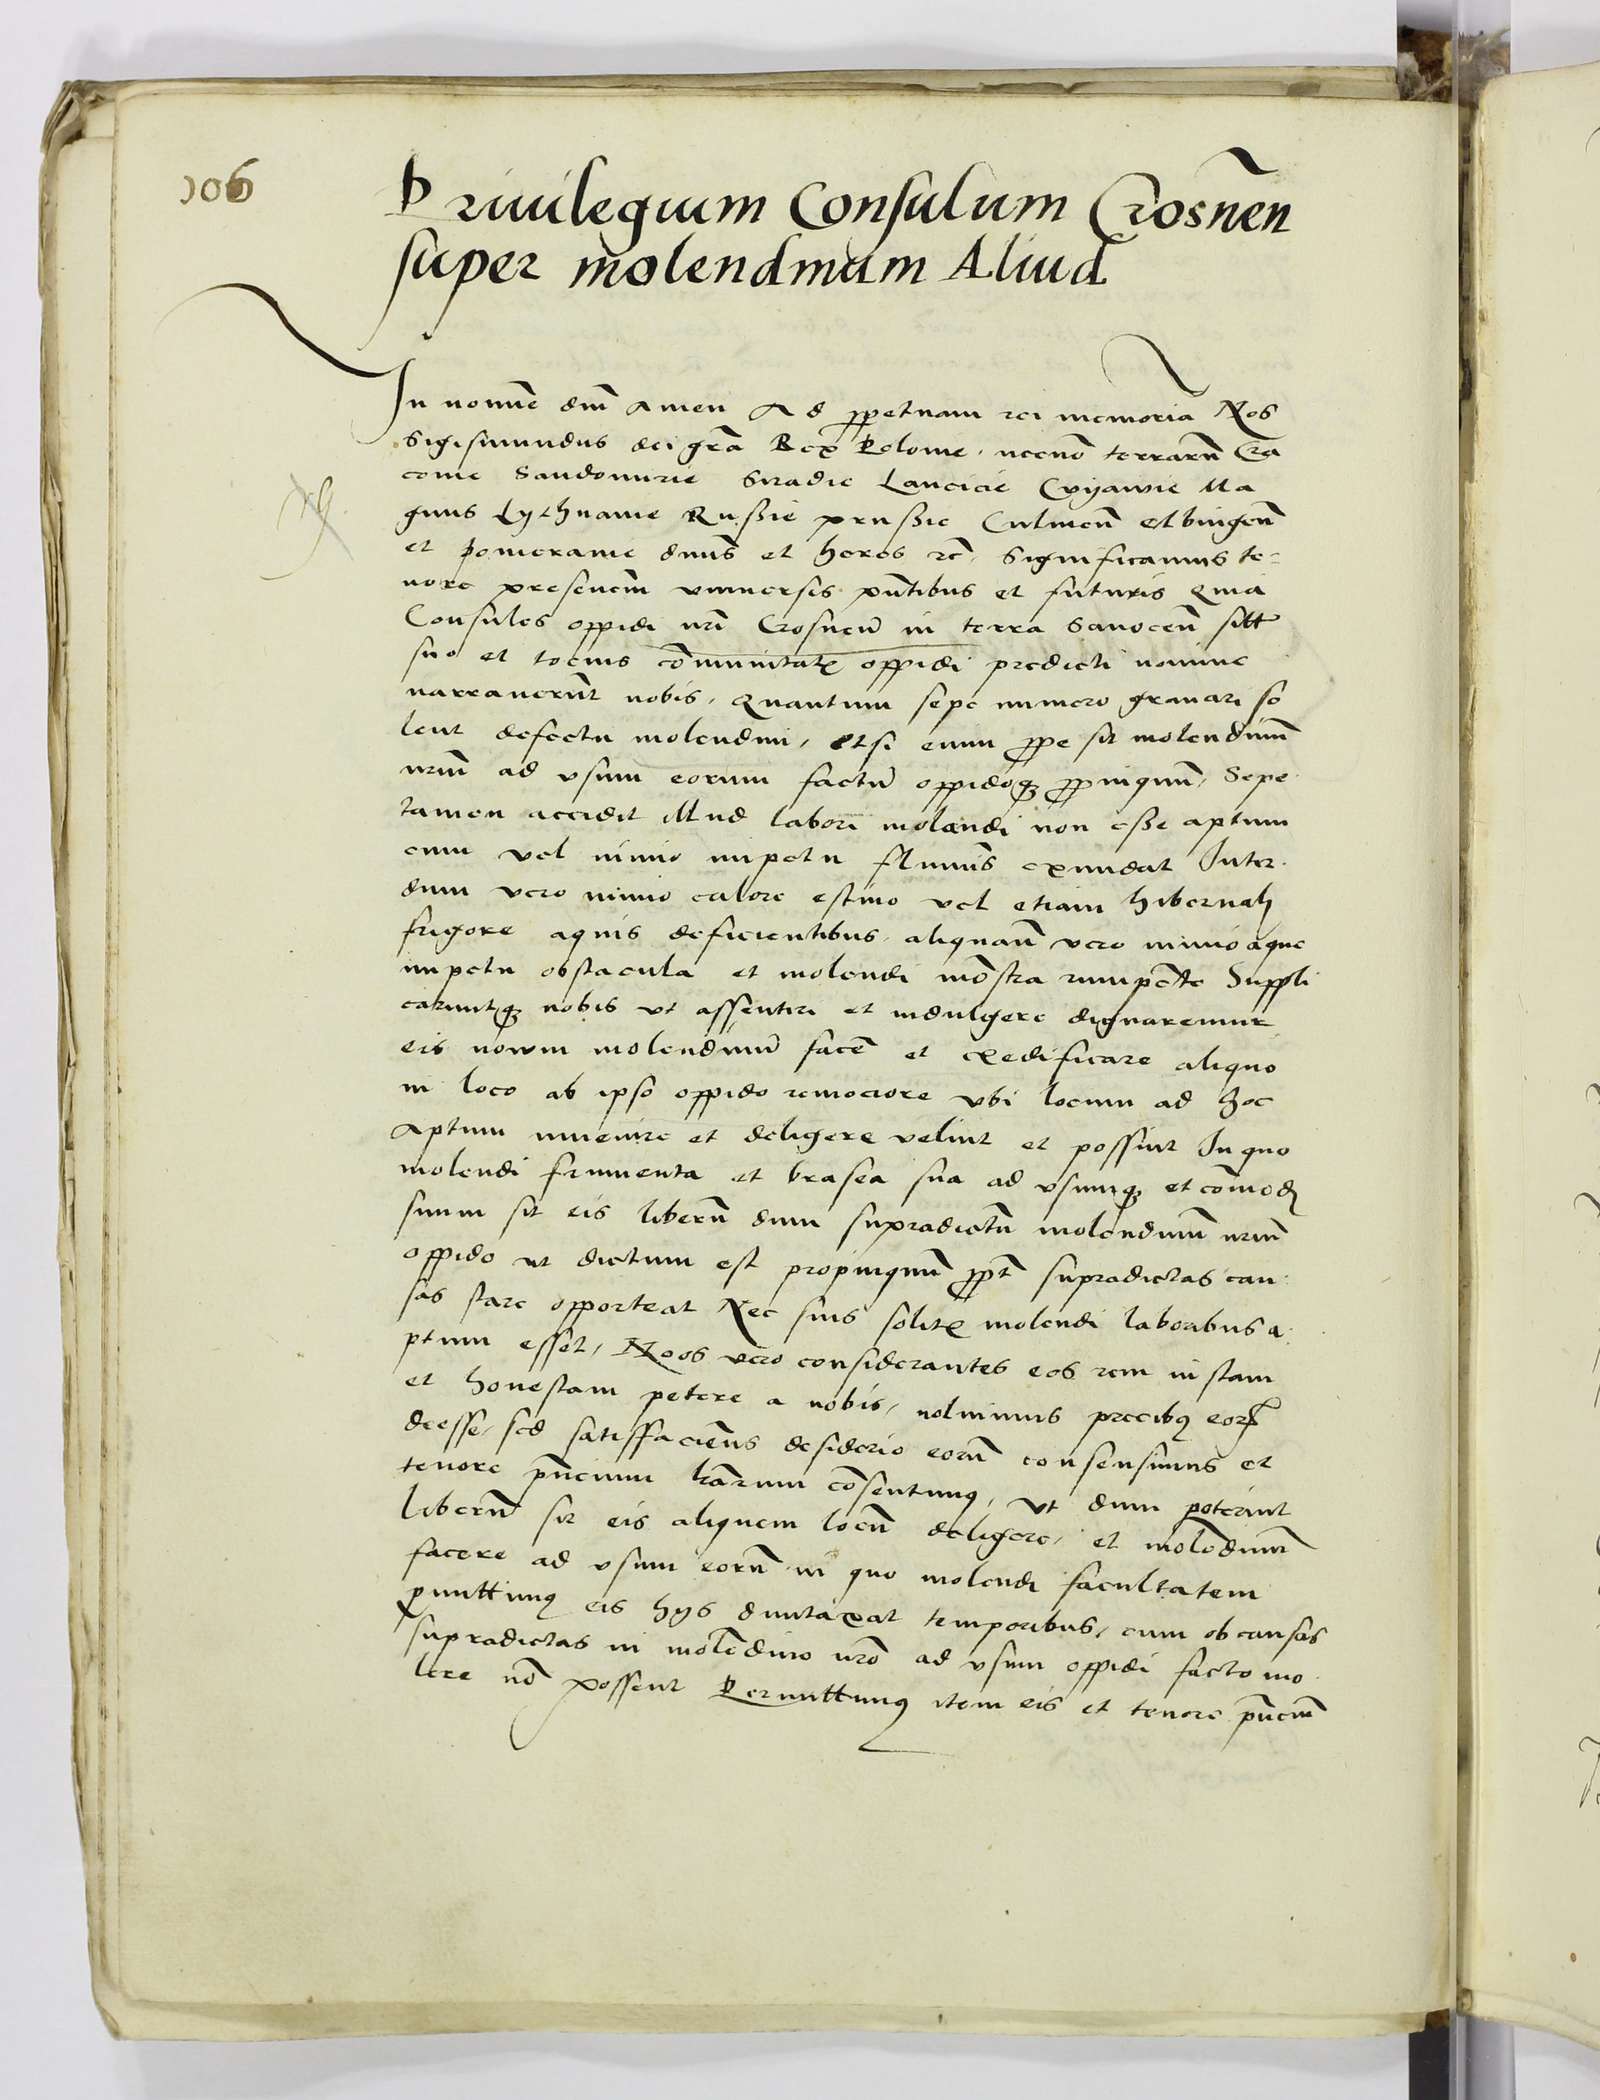 106
Priuilegium Consulum Crosnēn
super molendinum Aliud
In nomīe dm̄ Amen Ad ꝑpetuam rei memoriā Nos
Sigismundus dei grā Rex Polonie, necnō terrarū Cra
couie Sandomirie Siradie Lancicie Cuyauie Ma
gnus Lythuanie Russie prussie Culmeñ Elbingeñ
et pomeranie dn̄us et heres rc̄, Significamus te=
nore presencm̄ vniuersis pn̄tibus et futuris Quia
Consules oppidi nr̄i Crosneñ in terra Sanoceñ sitt
suo et tocius cōmunitatꝭ oppidi predicti nomine
narrauerūt nobis, Quantum sepe numero grauari so
lent defectu molendini, Etsi enim ꝓpe sit molendinū
nr̄m ad vsum eorum factū oppidoqꝫ ꝓpinquū, Sepe
tamen accidit illud labori molendi non esse aptum
cum vel nimio impetu fluminis exundat Inter
dum vero nimio calore estiuo vel etiam hibernali
frigore aquis deficientibus, aliquañ vero nimio aque
impetu obstacula et molendi mōstra rumpēte Suppli
caruntqꝫ nobis vt assentiri et indulgere dignaremur
eis nowm molendinū facē et exedificare aliquo
in loco ab ipso oppido remociore vbi locum ad hoc
Aptum inuenire et deligere velint et possint In quo
molendi frumenta et brasea sua ad vsumqꝫ et cōmodū
suum sit eis liberū dum supradictū molendinū nr̄m
oppido ut dictum est propinquū ꝓpt̄ supradictas cau
sas stare opporteat Nec suis solitꝭ molendi laboribus a
ptum esset, Noos vero considerantes eos rem iustam
et honestam petere a nobis, noluimus precibꝰ eorꝝ
deesse, sed satisfacienꝭ desiderio eorū consensimus et
tenore pn̄cium lrārum cōsentimꝰ, vt dum poterint
liberū sit eis aliquem locū deligere, et molēdinū
facere ad vsum eorū in quo molendi facultatem
ꝑmittimꝰ eis hys duntaxat temporibus, cum ob causas
supradictas in molēdino nr̄o ad vsum oppidi facto mo
lere nō possent Permittimꝰ item eis et tenore pn̄cm̄